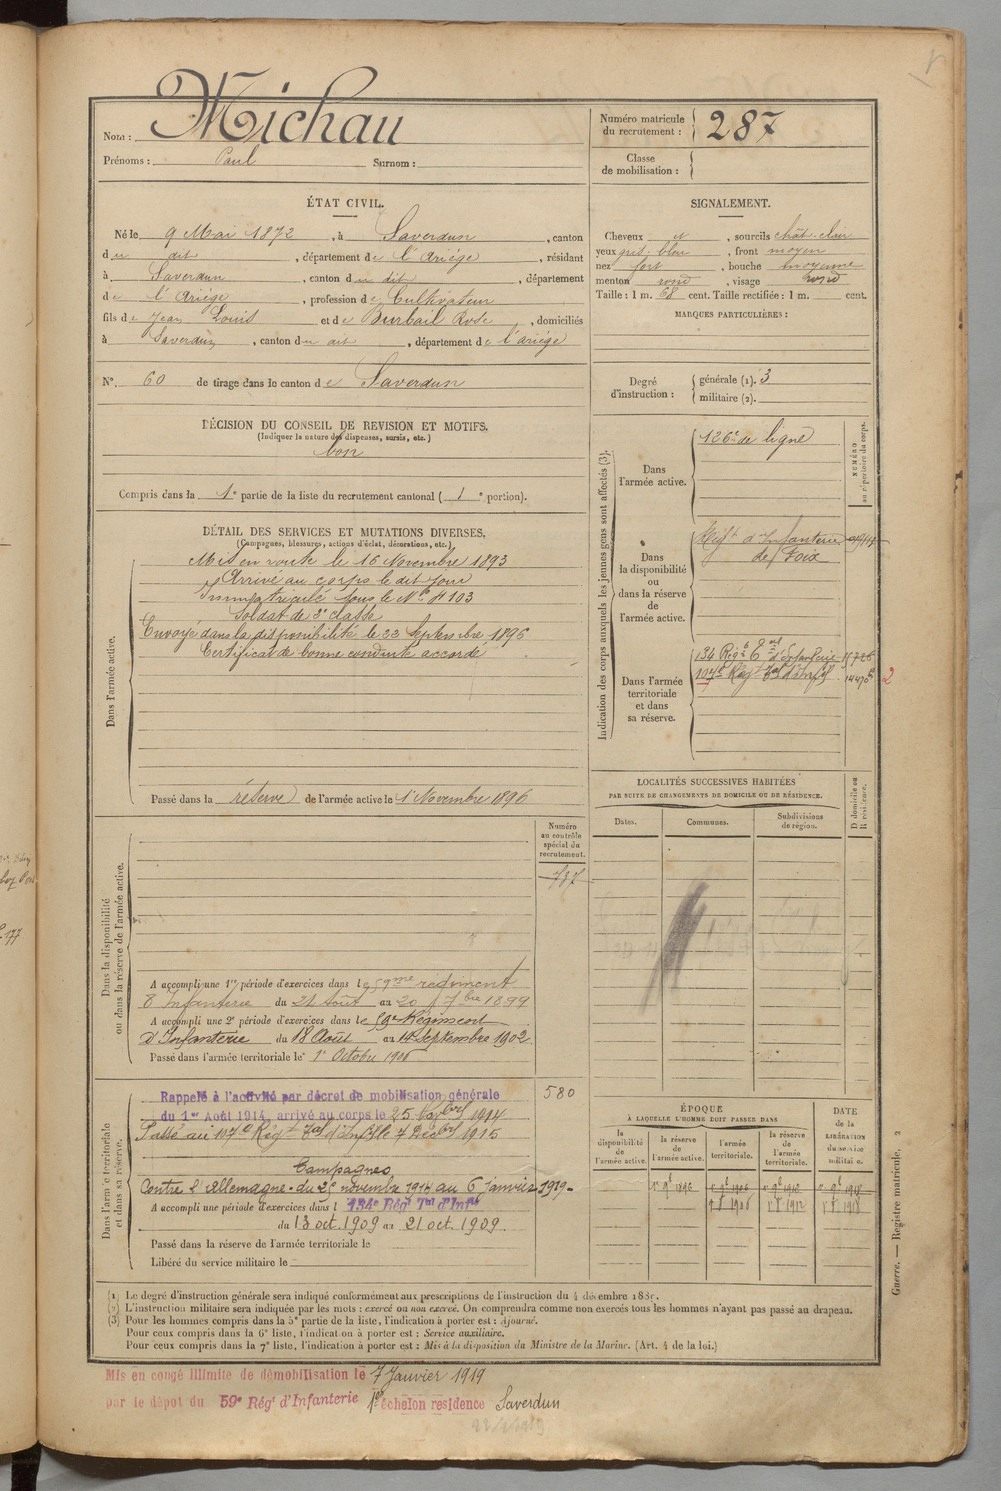 Nom : Michau
Prénoms : Paul Surnom :
Numéro matricule du recrutement : 287
Classe de mobilisation :
ÉTAT CIVIL.
Né le 9 Mai 1872, à Saverdun, canton
du dit, département de l'Ariége, résidant
à Saverdun, canton du dit, département
de l'Ariége, profession de Cultivateur
fils de Jean Louis et de Burbail Rose, domiciliés
à Saverdun, canton du dit, département de l'ariége
N°. 60 de tirage dans le canton de Saverdun
SIGNALEMENT.
Cheveux et, sourcils chât-clair
yeux gris-bleu, front moyen
nez fort, bouche moyenne
menton rond, visage rond
Taille : 1 m. 68 cent. Taille rectifiée : 1 m. cent.
MARQUES PARTICULIÈRES :
Degré d'instruction : générale (1). 3
militaire (2).
DÉCISION DU CONSEIL DE REVISION ET MOTIFS.
(Indiquer la nature des dispenses, sursis, etc.)
bon
Compris dans la 1e partie de la liste du recrutement cantonal (1e portion).
DÉTAIL DES SERVICES ET MUTATIONS DIVERSES.
(Campagnes, blessures, actions d'éclat, décorations, etc.)
Dans l'armée active.
Mis en route le 16 Novembre 1893
Arrivé au corps le dit jour
Immatriculé sous le No 4103
Soldat de 2e classe
Envoyé dans la disponibilité le 22 Septembre 1896
Certificat de bonne conduite accordé
Passé dans la réserve de l'armée active le 1 Novembre 1896
Indication des corps auxquels les jeunes gens sont affectés (3).
NUMÉRO au répertoire du corps.
Dans l'armée active.
126e de ligne
Dans la disponibilité ou dans la réserve de l'armée active.
Régt d'Infanterie
de Foix
Dans l'armée territoriale et dans sa réserve.
134 Régt tal d'Infanterie
104e Régt Tal d'Infie
2
LOCALITÉS SUCCESSIVES HABITÉES
PAR SUITE DE CHANGEMENTS DE DOMICILE OU DE RÉSIDENCE.
Dates. Communes. Subdivisions de région. D domicile ou R résidence.
Numéro au contrôle spécial du recrutement.
787
Dans la disponibilité ou dans la réserve de l'armée active.
A accompli une 1re période d'exercices dans le 59me régiment
d'Infanterie du 24 août au 20 7bre 1899
A accompli une 2e période d'exercices dans le 59e Régiment
d'Infanterie du 18 Août au 14 Septembre 1902.
Passé dans l'armée territoriale le 1r Octobre 1906
580
Dans l'armée territoriale et dans sa réserve.
Rappelé à l'activité par décret de mobilisation générale
du 1er Août 1914, arrivé au corps le 25 Novbre 1914
Passé au 107e Régt Tal d'Infie le 7 Décbre 1915
Campagnes
Contre l'Allemagne - du 25 novembre 1914 au 6 janvier 1919 -
A accompli une période d'exercices dans l 134e Régt Tal d'Infie
du 13 oct. 1909 au 21 oct. 1909.
Passé dans la réserve de l'armée territoriale le
Libéré du service militaire le
ÉPOQUE
À LAQUELLE L'HOMME DOIT PASSER DANS
la disponibilité de l'armée active. la réserve de l'armée active. l'armée territoriale. la réserve de l'armée territoriale.
DATE de la LIBÉRATION du service militaire.
Guerre. — Registre matricule. 3
(1) Le degré d'instruction générale sera indiqué conformément aux prescriptions de l'instruction du 4 décembre 1889.
(2) L'instruction militaire sera indiquée par les mots : exercé ou non exercé. On comprendra comme non exercés tous les hommes n'ayant pas passé au drapeau.
(3) Pour les hommes compris dans la 5e partie de la liste, l'indication à porter est : Ajourné.
Pour ceux compris dans la 6e liste, l'indication à porter est : Service auxiliaire.
Pour ceux compris dans la 7e liste, l'indication à porter est : Mis à la disposition du Ministre de la Marine. (Art. 4 de la loi.)
Mis en congé illimité de démobilisation le 7 Janvier 1919
par le dépôt du 59e Régt d'Infanterie 1er échelon résidence Saverdun